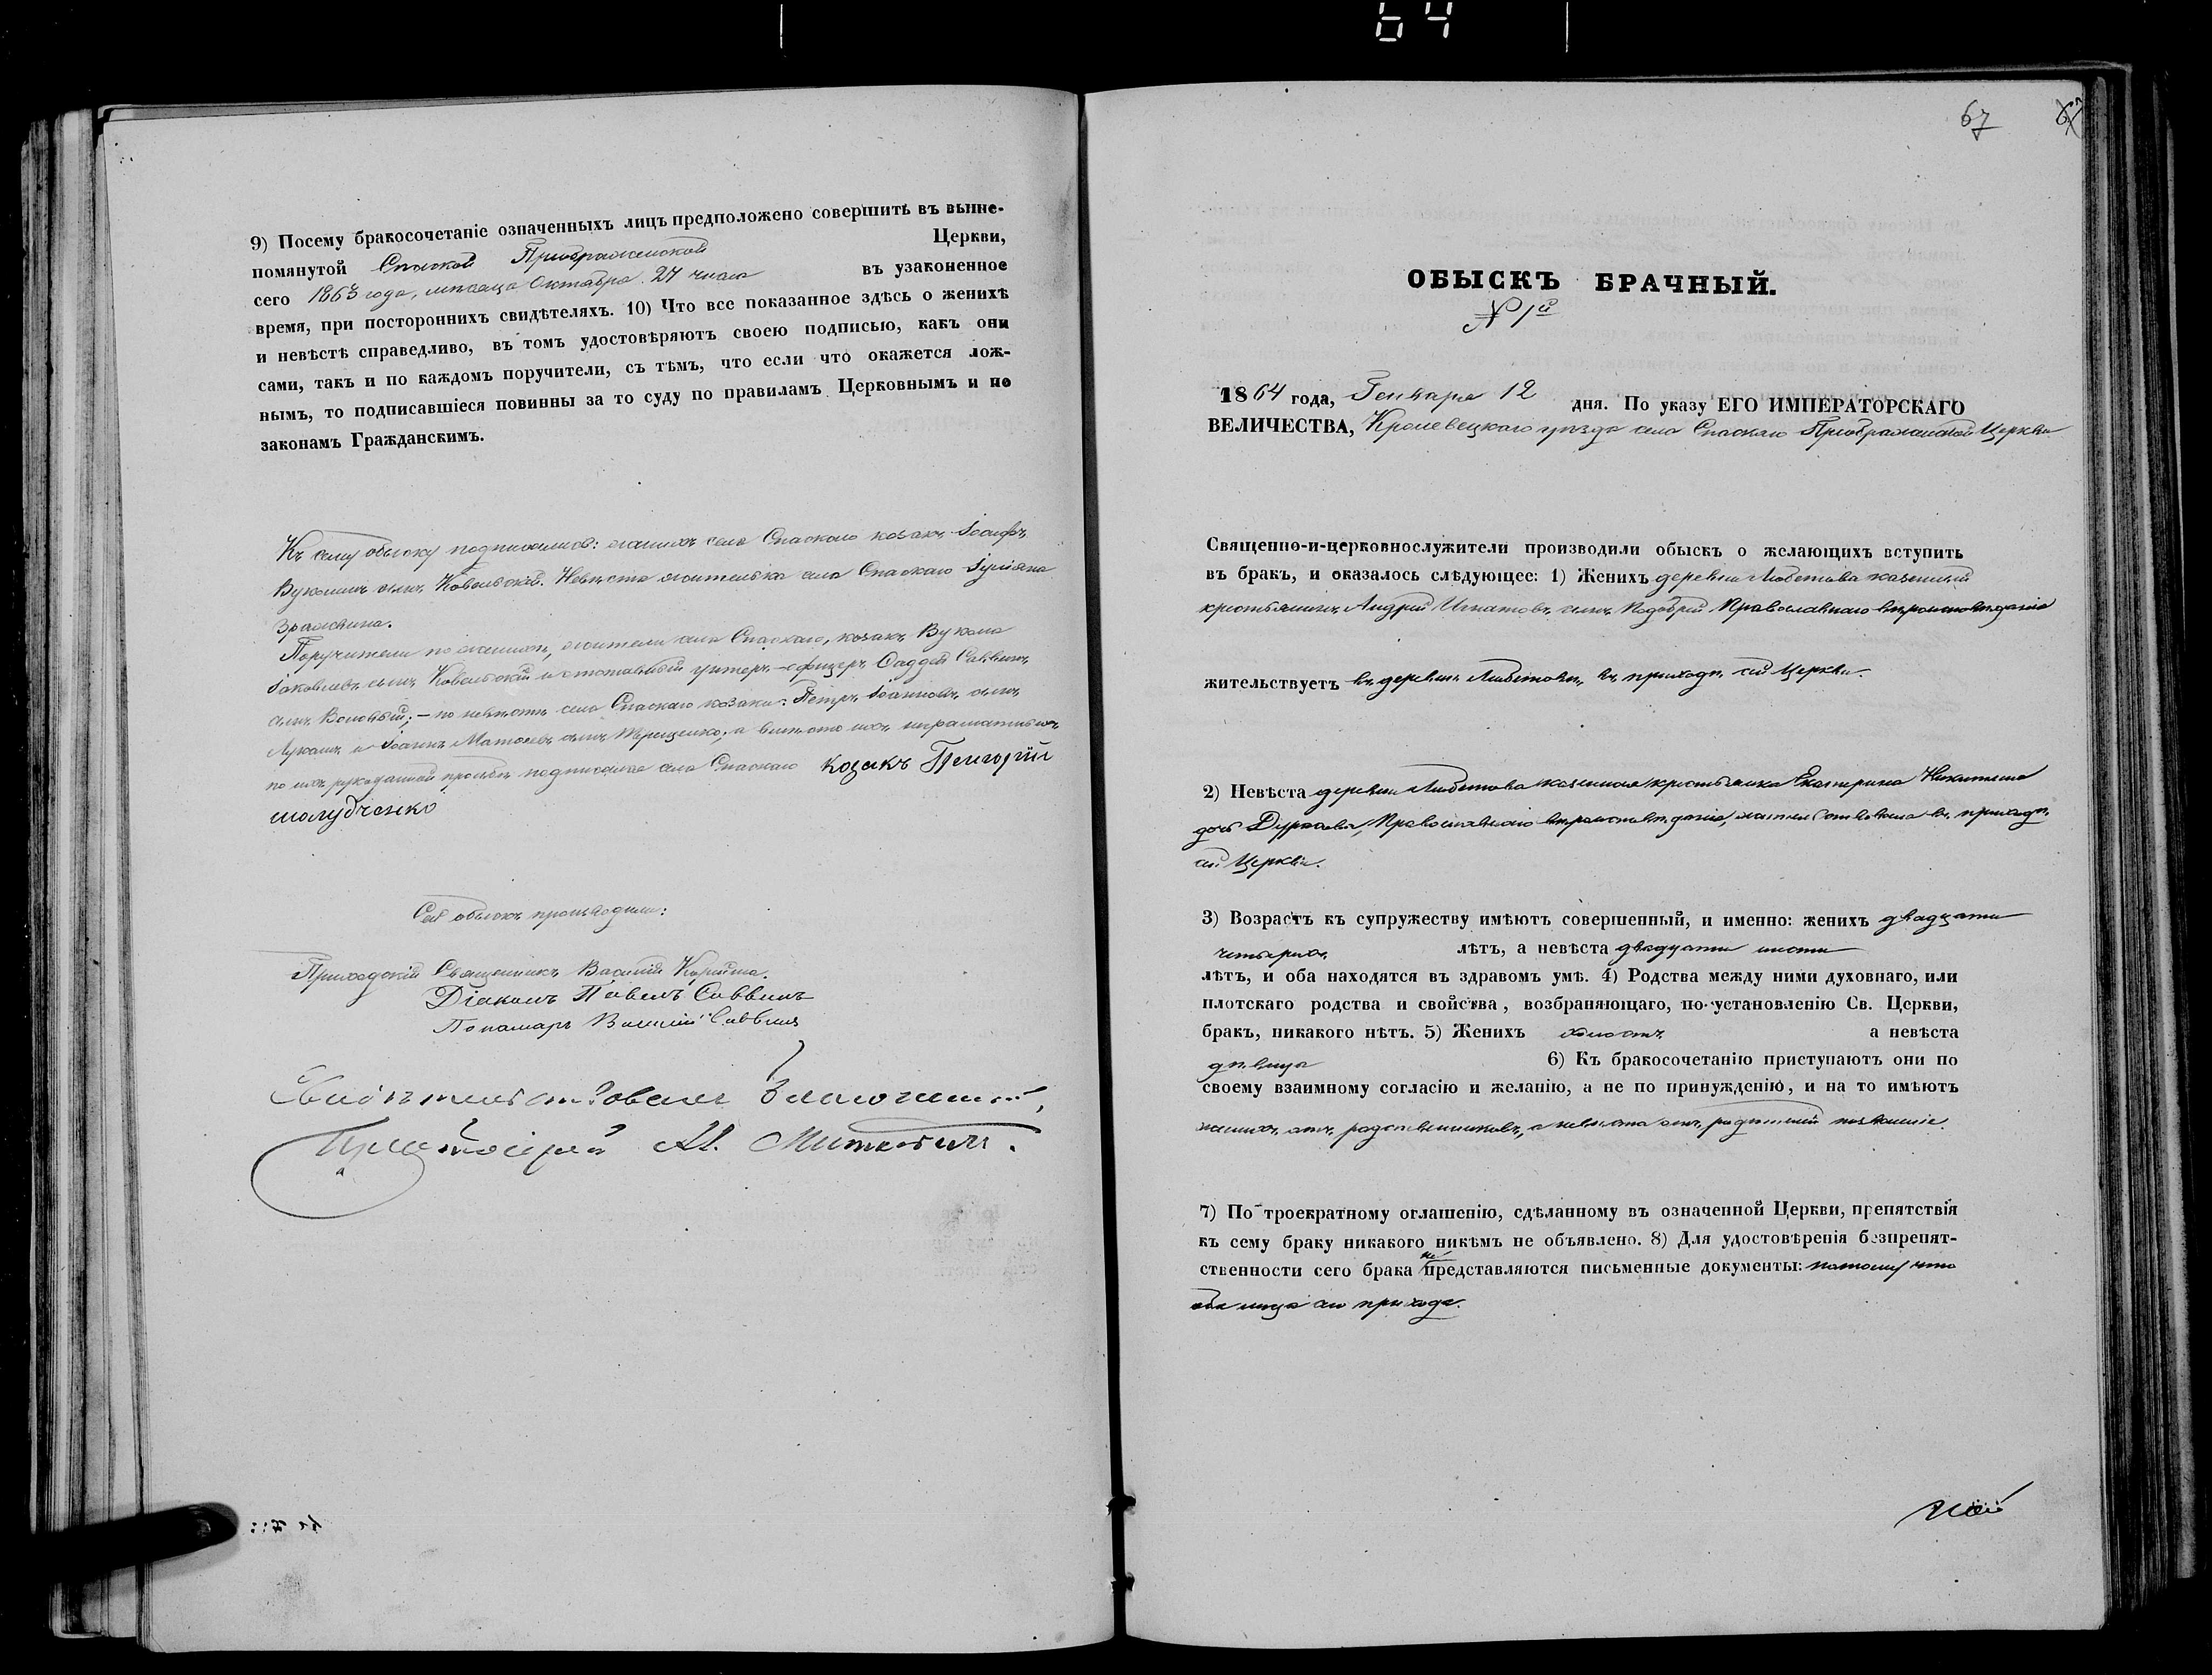 64
9) Посему бракосочетаніе означенныхъ лицъ предположено совершить въ выше-
помянутой Спаской Преображенской Церкви,
сего 1863 года, месяца Октября 27 числа въ узаконенное
время, при постороннихъ свидѣтеляхъ. 10) Что все показанное здѣсь о женихѣ
и невѣстѣ справедливо, въ томъ удостовѣряютъ своею подписью, какъ они
сами, такъ и по каждомъ поручители, съ тѣмъ, что если что окажется лож-
нымъ, то подписавшіеся повинны за то суду по правиламъ Церковнымъ и по
законамъ Гражданскимъ.
Къ сему обыску подписались: женихъ села Спаскаго козакъ Іосифъ
Вуколинъ сынъ Ковальскій. Невѣста жителька села Спаскаго Іуліяна
Поручители по женихѣ, жители села Спаскаго, козакъ Вукола
Іаковлевъ сынъ Ковальскій и отставный унтеръ-офицеръ Фаддей Саввинъ
сынъ ; – по невѣстѣ села Спаскаго козаки: Петръ Іоанновъ сынъ
и Іоаннъ сынъ ; а вмѣсто ихъ неграматныхъ
по ихъ рукоданной прозьбѣ подписался села Спаскаго козакъ Григорій
шолудченко
Сей обыскъ производили:
Приходскій Священникъ Василій
Діаконъ Павелъ Саввинъ
Пономарь Василій Саввинъ
Свидѣтельствовалъ Благочинный,
Протоіерей
67
ОБЫСКЪ БРАЧНЫЙ.
№ 1й
1864 года, Генваря 12 дня. По указу ЕГО ИМПЕРАТОРСКАГО
ВЕЛИЧЕСТВА, Кролевецкаго уѣзда села Спаскаго Преображенской Церкви
Священно-и-церковнослужители производили обыскъ о желающихъ вступить
въ бракъ, и оказалось слѣдующее: 1) Женихъ деревни Любитова казенный
крестьянинъ Андрей Игнатовъ сынъ Православнаго вѣроисповѣданія
жительствуетъ въ деревнѣ Любитовѣ, въ приходѣ сей Церкви.
2) Невѣста деревни Любитова казенная крестьянка Екатерина Никитина
дочь Православнаго вѣроисповѣданія, въ приходѣ
сей Церкви.
3) Возрастъ къ супружеству имѣютъ совершенный, и именно: женихъ двадцати
четырехъ лѣтъ, а невѣста двадцати шести
лѣтъ, и оба находятся въ здравомъ умѣ. 4) Родства между ними духовнаго, или
плотскаго родства и свойства, возбраняющаго, по установленію Св. Церкви,
бракъ, никакого нѣтъ. 5) Женихъ холостъ а невѣста
дѣвица 6) Къ бракосочетанію приступаютъ они по
своему взаимному согласію и желанію, а не по принужденію, и на то имѣютъ
женихъ отъ родственниковъ, а невѣста отъ родителей позволеніе.
7) По троекратному оглашенію, сдѣланному въ означенной Церкви, препятствія
къ сему браку никакого никѣмъ не объявлено. 8) Для удостовѣренія безпрепят-
ственности сего брака не представляются письменные документы: потому что
оба лица сего прихода.